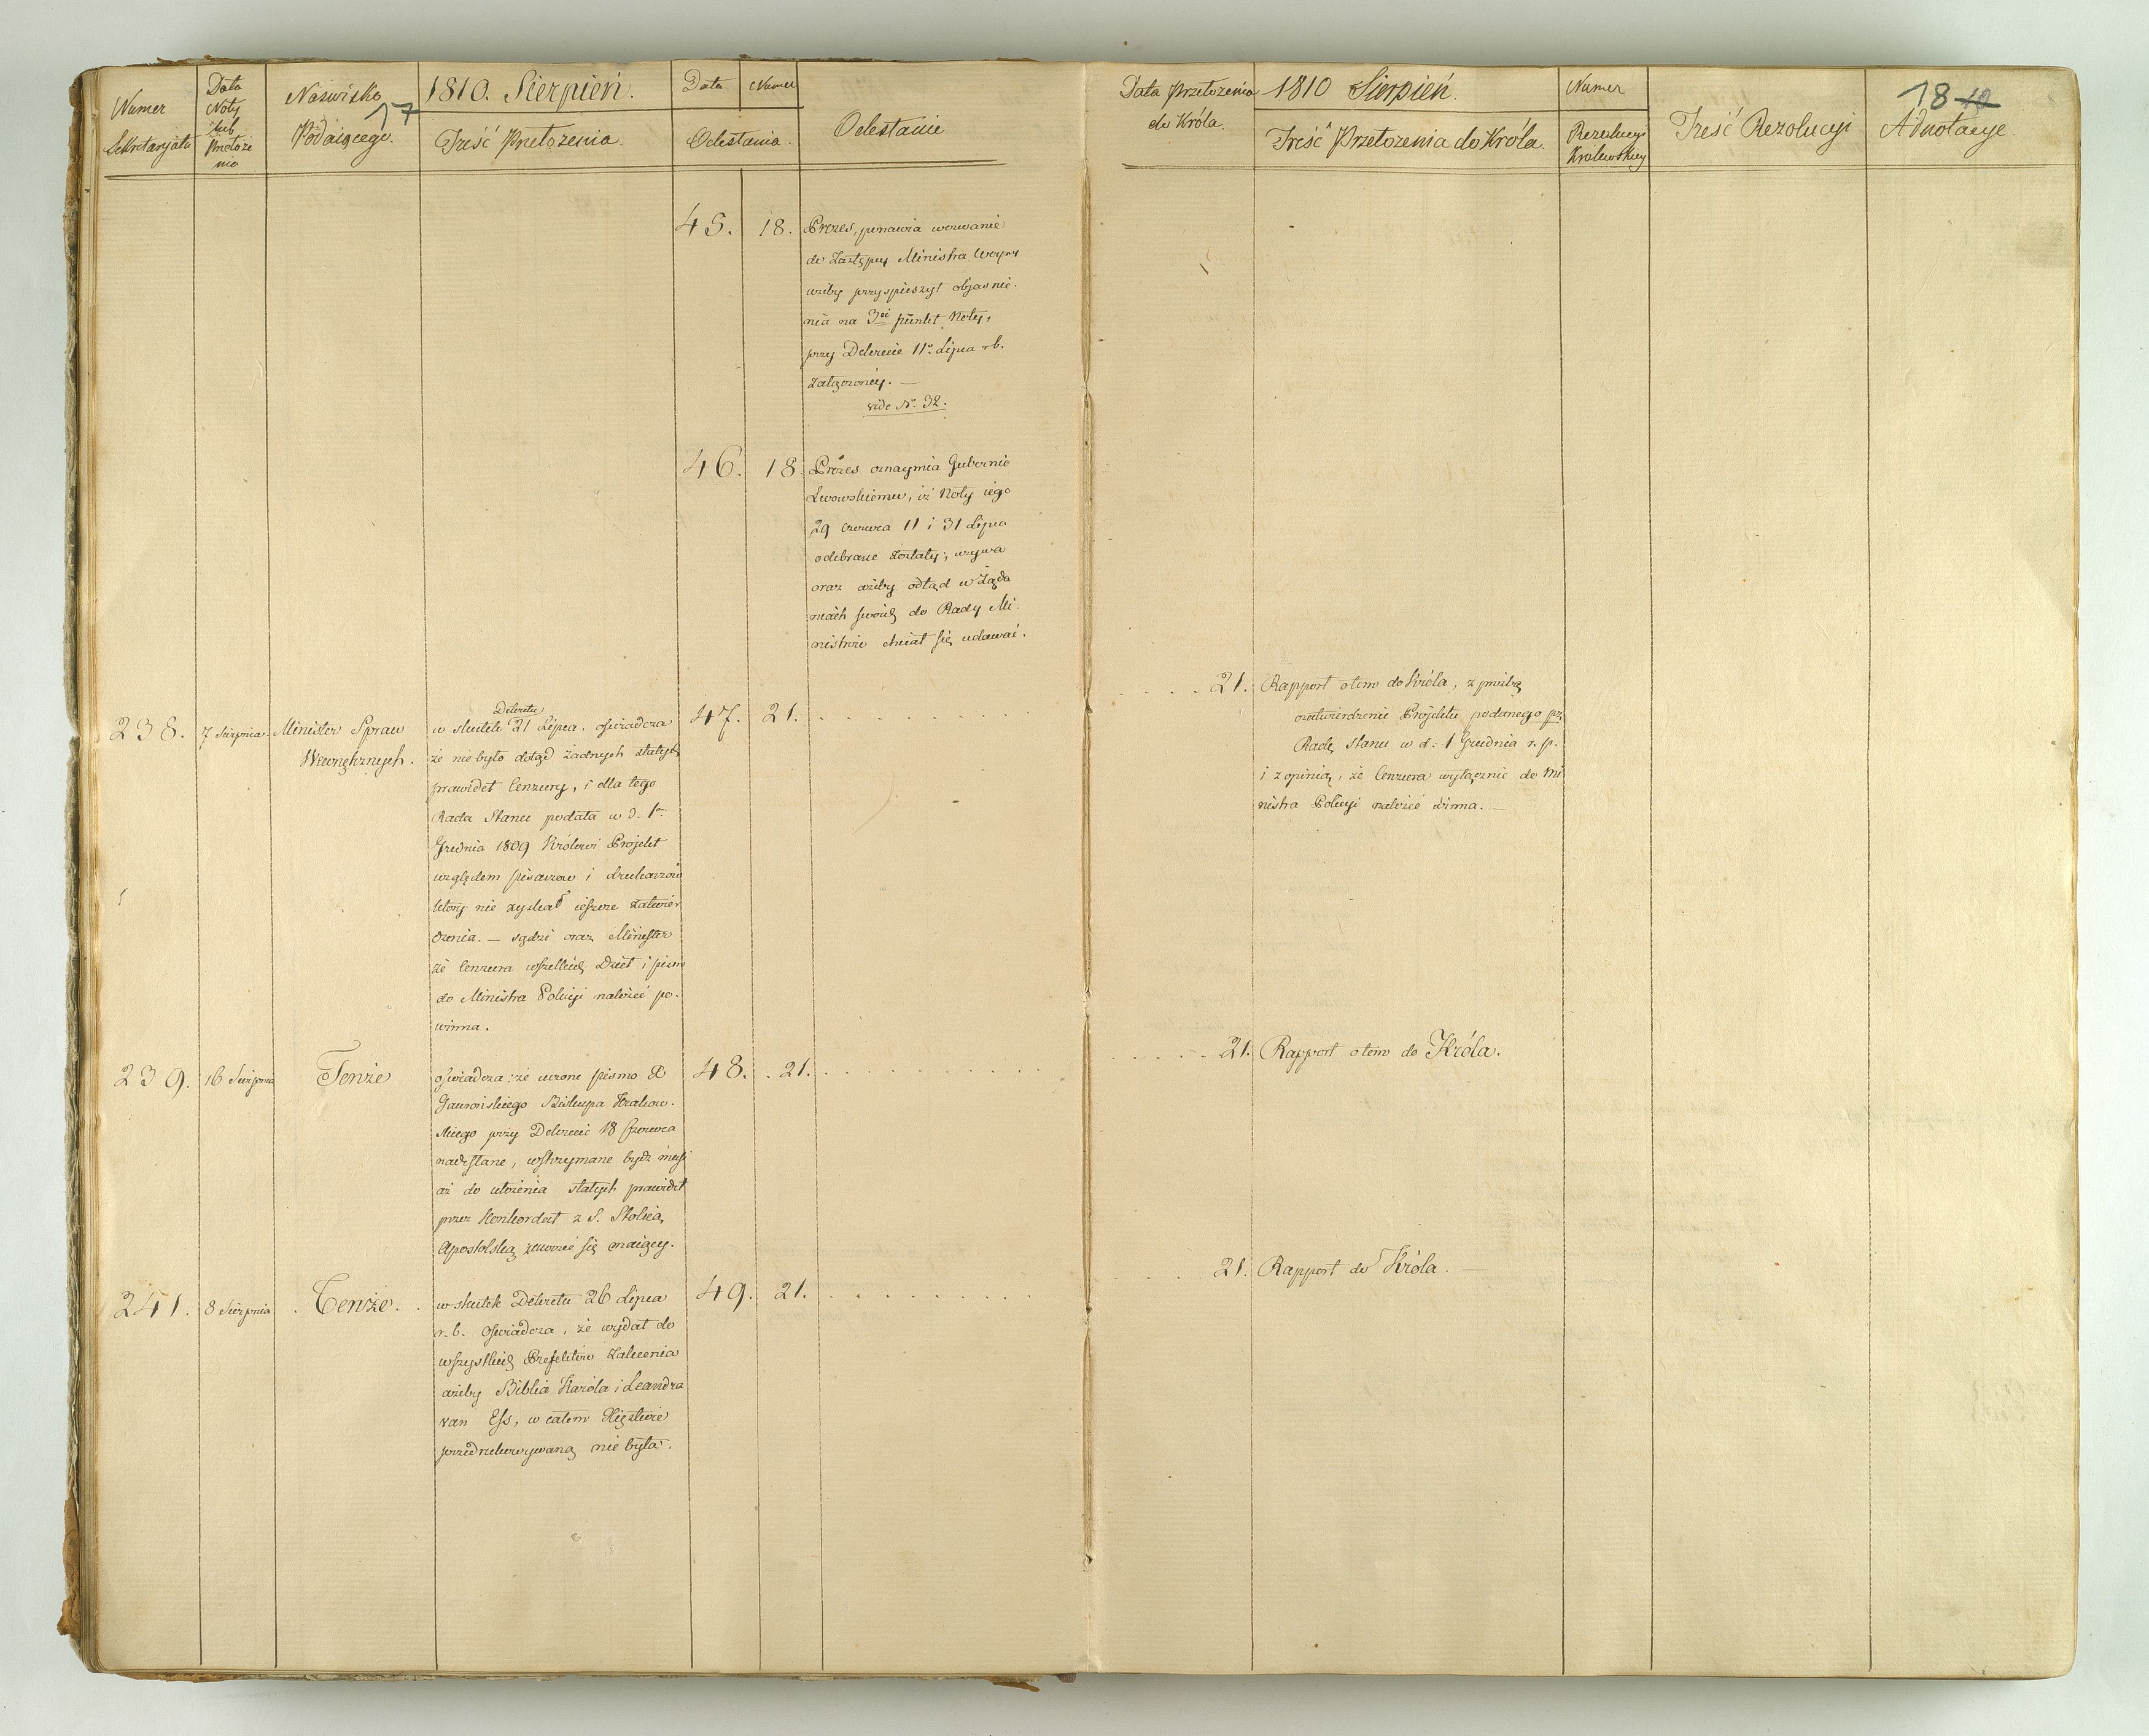 Numer
Sekretarjatu
Data
Noty
lub
Przełoże
nia
Nazwisko
17
Podaiącego.
1810. Sierpień.
Treść Przełożenia.
Data
Numer
Odesłania.
Odesłanie
45. 18. Prezes, ponawia wezwanie
do Zastępcy Ministra Woyny
ażeby przyspieszył objaśnie-
nia na 3ci punkt Noty,
przy Dekrecie 11o Lipca rb.
załączoney. —
vide No. 32.
46. 18. Prezes oznaymia Gubernie
Lwowskiemu, iż Noty iego
29 czerwca 11 i 31 Lipca
odebrane zostały; wzywa
oraz ażeby odtąd w Żąda
niach swoich do Rady Mi-
nistrów chciał się udawać.
238. 7 Sierpnia. Minister Spraw
Wewnętrznych.
Dekretu
w skutek 21 Lipca. oświadcza
że nie było dotąd żadnych stałych
prawideł Cenzury, i dla tego
Rada Stanu podała w d. 1o
Grudnia 1809 Królowi Projekt
względem pisarzow i drukarzow
ktory nie zyskał ieszcze zatwier
dzenia. — sądzi oraz Minister
że Cenzura wszelkich Dzieł i pism
do Ministra Policyi należeć po-
winna.
47. 21. . . . . . . . . . .
239. 16 Sierpnia Tenże
oświadcza: że uczone pismo X
Gawrońskiego Biskupa Krakow-
skiego przy Dekrecie 18 Czerwca
nadesłane, wstrzymane bydź musi
aż do ułożenia stałych prawideł
przez Konkordat z S. Stolicą
Apostolską zawrzeć się maiący.
48. 21. . . . . . . . . . .
241. 8 Sierpnia . Tenże. .
w skutek Dekretu 26 Lipca
r. b. oświadcza, że wydał do
wszystkich Prefektów zalecenia
ażeby Biblia Karola i Leandra
van Ess, w całem Xięstwie
przedrukowywaną nie była.
49. 21. . . . . . . . . .
Data Przełożenia
do Króla.
1810 Sierpień.
Treść Przełożenia do Króla.
Numer
Rezolucyi
Królewskiey
Treść Rezolucyi
18 10
Adnotacye.
. . . . 21. Rapport o tem do Króla, z prośbą
o zatwierdzenie Projektu podanego pr.
Radę Stanu w d: 1 Grudnia r. p.
i z opinią, że Cenzura wyłącznie do Mi
nistra Policyi należeć winna. —
. . . . . 21. Rapport o tem do Króla.
. . . . 21. Rapport do Króla. —